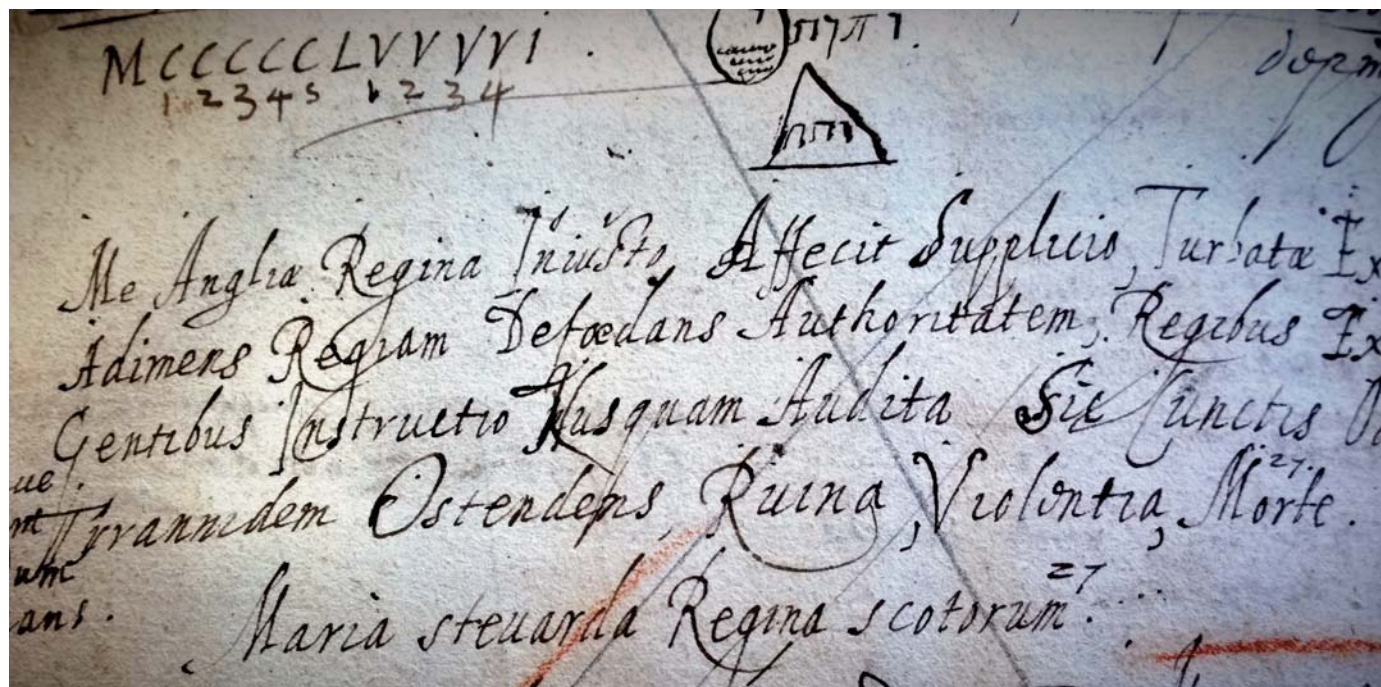 MCCCCCLVVVVVI .
1 2 3 4 5 1 2 3 4
Me Angliæ Regina Iniusto, Affecit Supplicio, Turbatæ Ex
Adimens Regiam Defœdans Authoritatem, Regibus Ex
Gentibus Instructio Nusquam Audita Sic Cunctis
ue.
Tyrannidem Ostendens, Ruina, Violentia, Morte. 27.
ans.
Maria steuarda Regina scotorum. 27